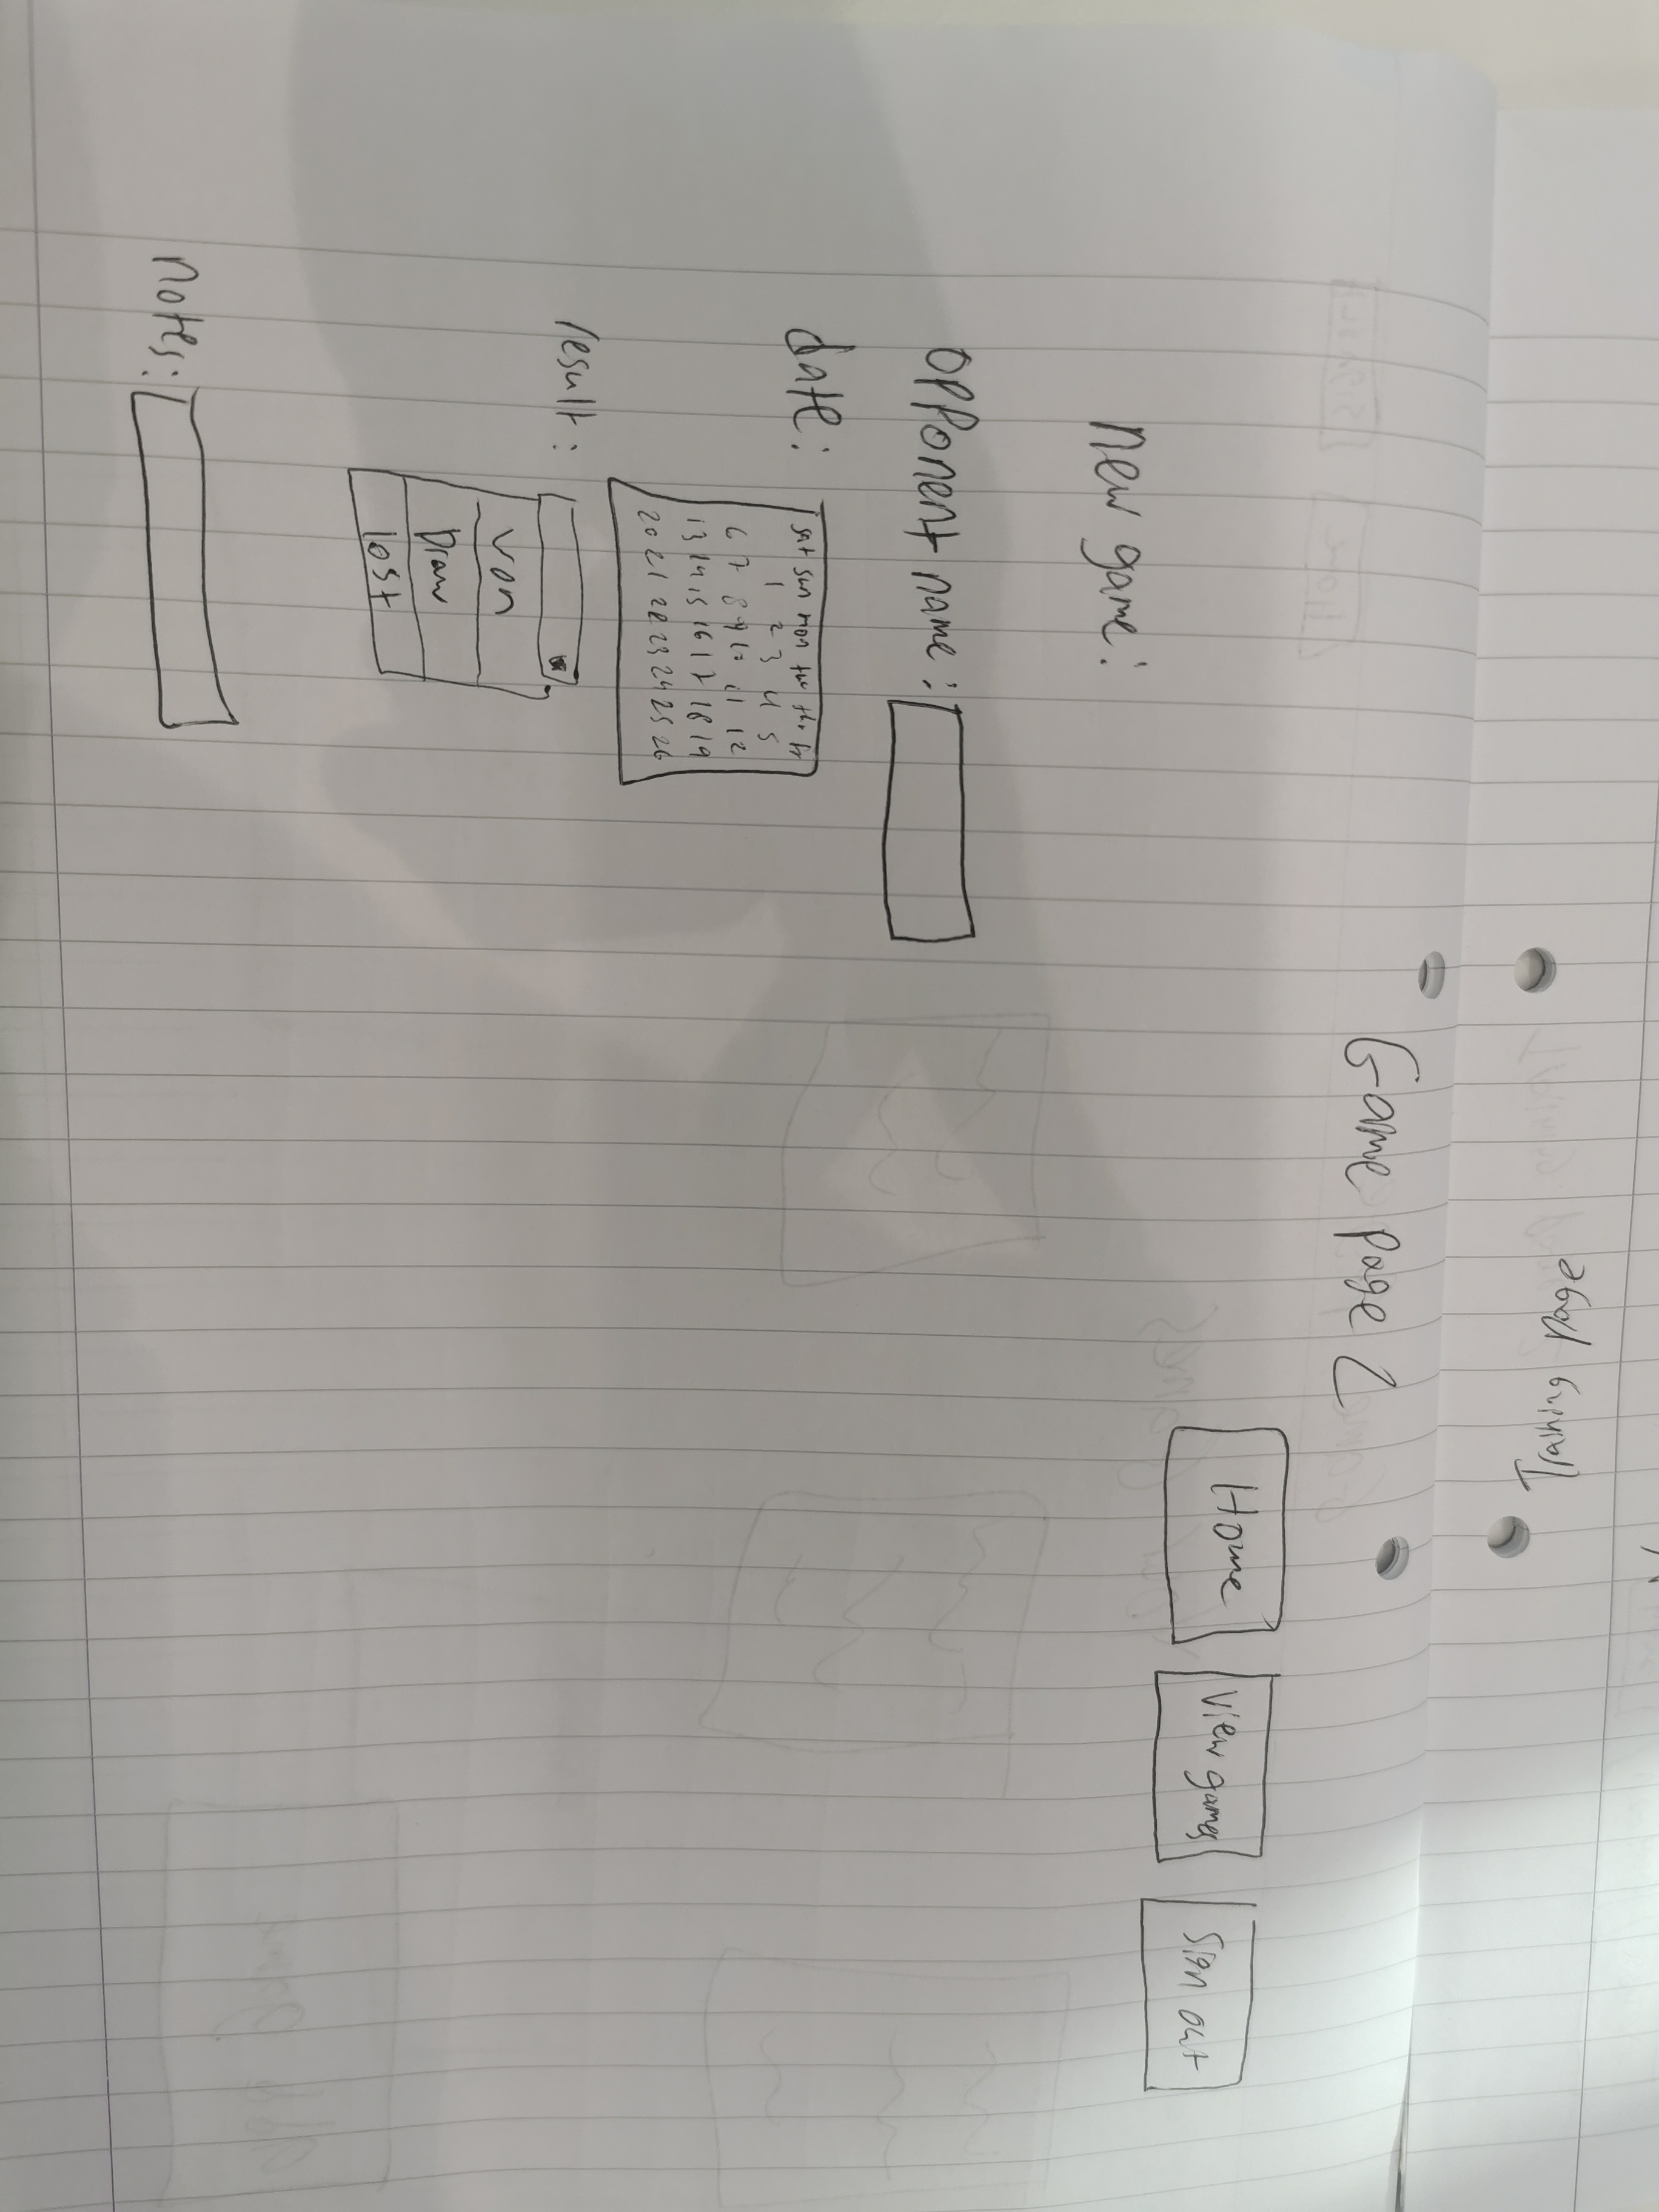 Training page
Game page 2
Home
View games
Sign out
New game:
opponent name:
date:
sat sun mon tue thu fr
1 2 3 4 5
6 7 8 9 10 11 12
13 14 15 16 17 18 19
20 21 22 23 24 25 26
result:
Won
Draw
lost
notes: